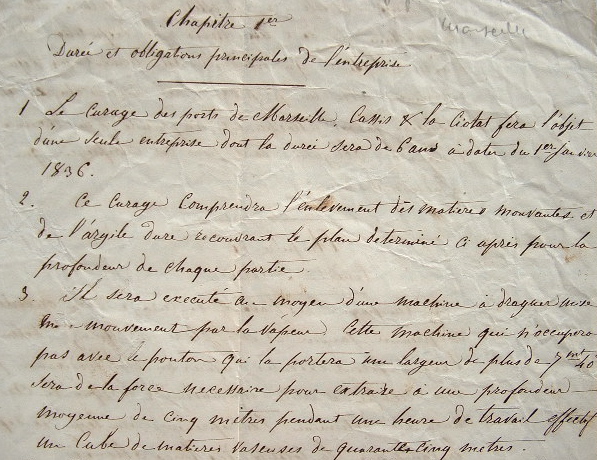 Chapitre 1er
Marseille
Durée et obligations principales de l'entreprise
1 Le Curage des ports de Marseille, Cassis & la Ciotat fera l'objet
d'une seule entreprise dont la durée sera de 6 ans à dater du 1er Janvier
1836.
2. Ce Curage Comprendra l'enlevement des matieres mouvantes et
de l'argile dure recouvrant le plan determiné ci après pour la
profondeur de chaque partie.
3. il sera executé au moyen d'une machine à draguer mise
en mouvement par la vapeur. Cette machine qui n'occupera
pas avec le ponton qui la portera une largeur de plus de 7mt 40
sera de la force necessaire pour extraire à une profondeur
moyenne de Cinq mètres pendant une heure de travail effectif
un Cube de matieres vaseuses de quarante Cinq metres.